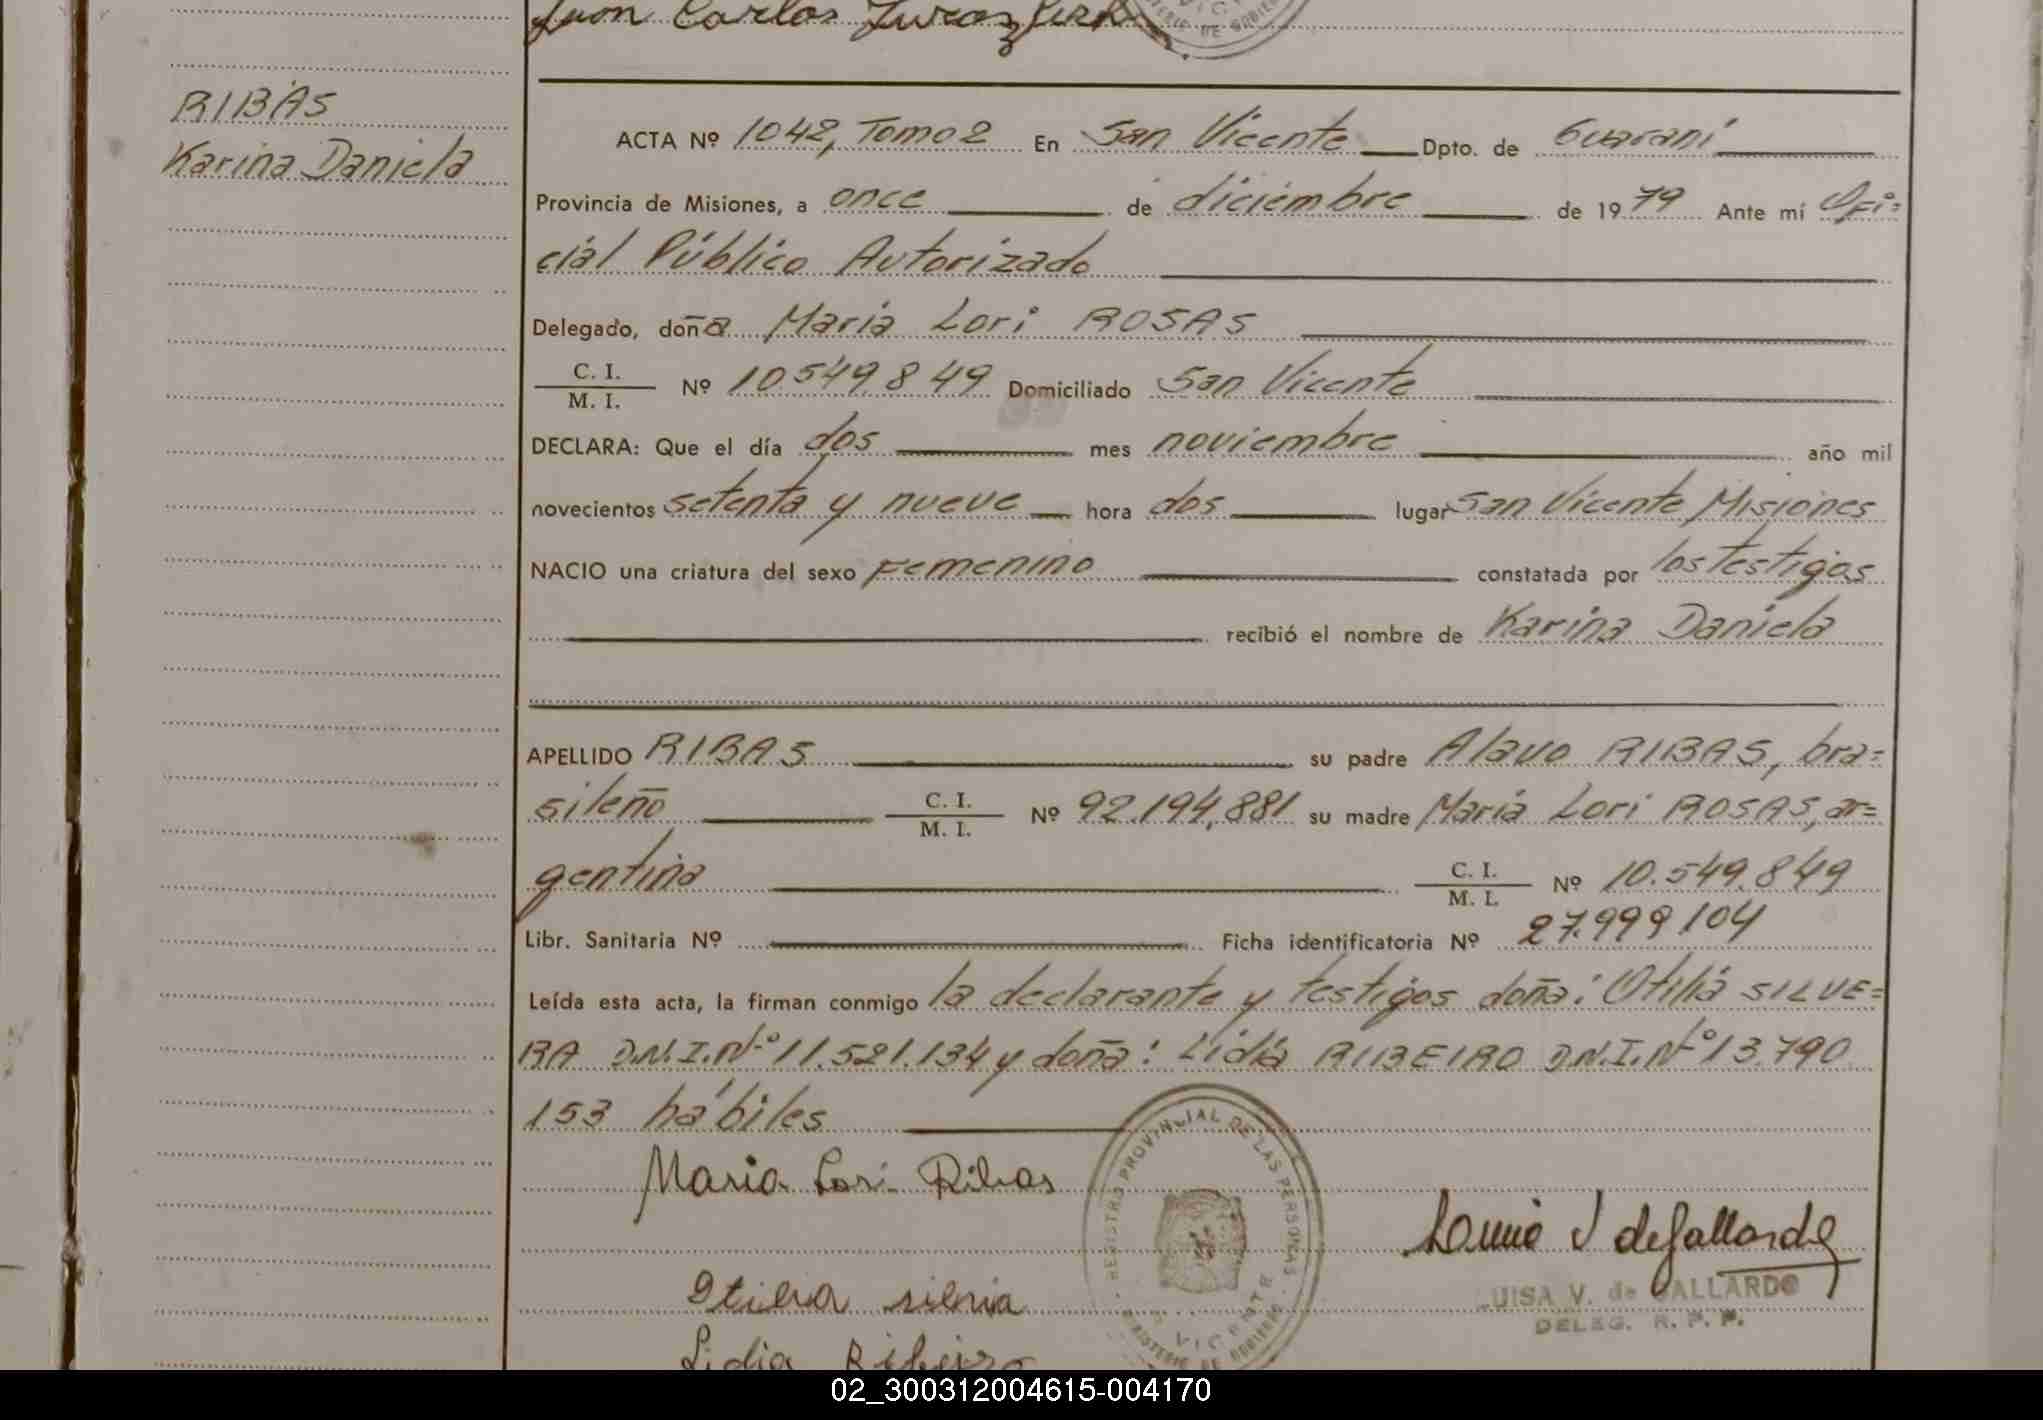 Juan Carlos
RIBAS
Karina Daniela
ACTA Nº 1042, Tomo 2 En San Vicente Dpto. de Guaraní
Provincia de Misiones, a once de diciembre de 1979 Ante mí Ofi=
cial Público Autorizado
Delegado, doña María Lori ROSAS
C. I.
M. I.
Nº 10.549.849 Domiciliado San Vicente
DECLARA: Que el día dos mes noviembre año mil
novecientos setenta y nueve hora dos lugar San Vicente Misiones
NACIO una criatura del sexo Femenino constatada por los testigos
recibió el nombre de Karina Daniela
APELLIDO RIBAS su padre Alavo RIBAS, bra=
sileño C. I. M. I. Nº 92.194.881 su madre María Lori ROSAS, ar=
gentina C. I. M. I. Nº 10.549.849
Libr. Sanitaria Nº Ficha identificatoria Nº 27.999104
Leída esta acta, la firman conmigo la declarante y testigos doña: Otilia SILVE=
RA D.N.I.Nº 11.521.134 y doña: Lidia RIBEIRO D.N.I.Nº 13.790
153 hábiles
Maria Lori Ribas
REGISTRO PROVINCIAL DE LAS PERSONAS
S. VICENTE
MINISTERIO DE GOBIERNO
de Gallardo
LUISA V. de GALLARDO
DELEG. R. P. P.
Lidia Ribeiro
02_300312004615-004170